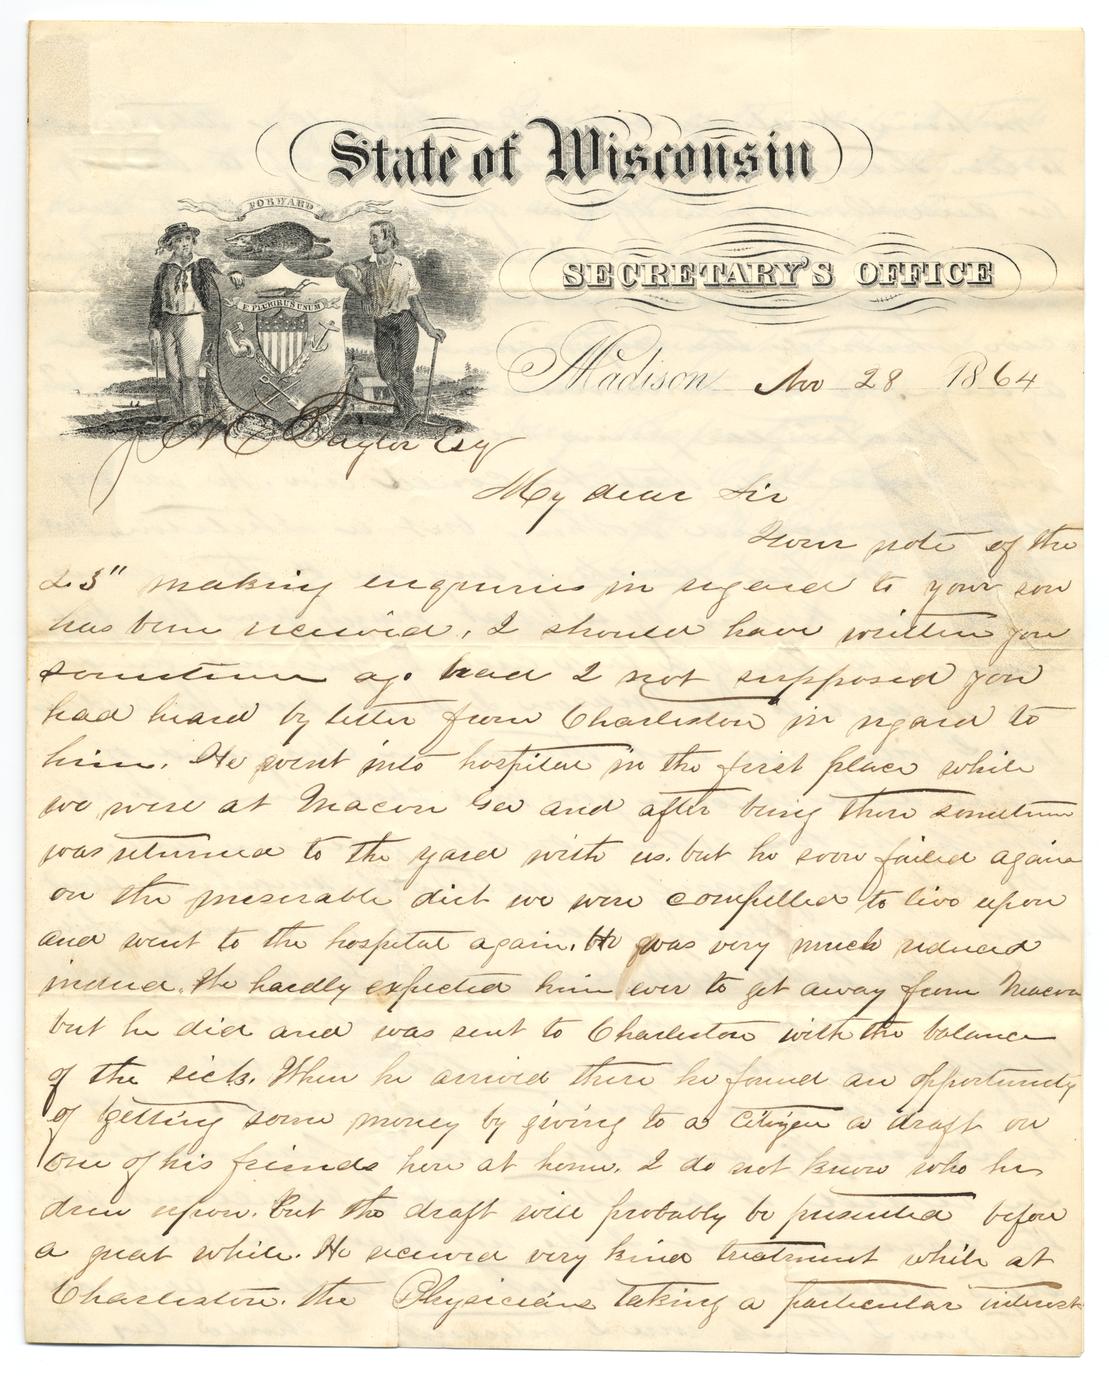 State of Wisconsin
FORWARD
SECRETARY'S OFFICE
E PLURIBUS UNUM
Madison Nov 28 1864
J. N. Taylor Esq
My dear Sir
Your note of the
23" making enquiries in regard to your son
has been received, I should have written you
sometime ago had I not supposed you
had heard by letter from Charleston in regard to
him. He went into hospital in the first place while
we were at Macon Geo and after being there sometime
was returned to the yard with us. but he soon failed again
on the miserable diet we were compelled to live upon
and went to the hospital again. He was very much reduced
indeed. We hardly expected him ever to get away from Macon
but he did and was sent to Charleston with the balance
of the sick. When he arrived there he found an opportunity
of getting some money by giving to a Citizen a draft on
one of his friends here at home. I do not know who he
drew upon. but the draft will probably be presented before
a great while. He received very kind treatment while at
Charleston. the Physicians taking a particular interest